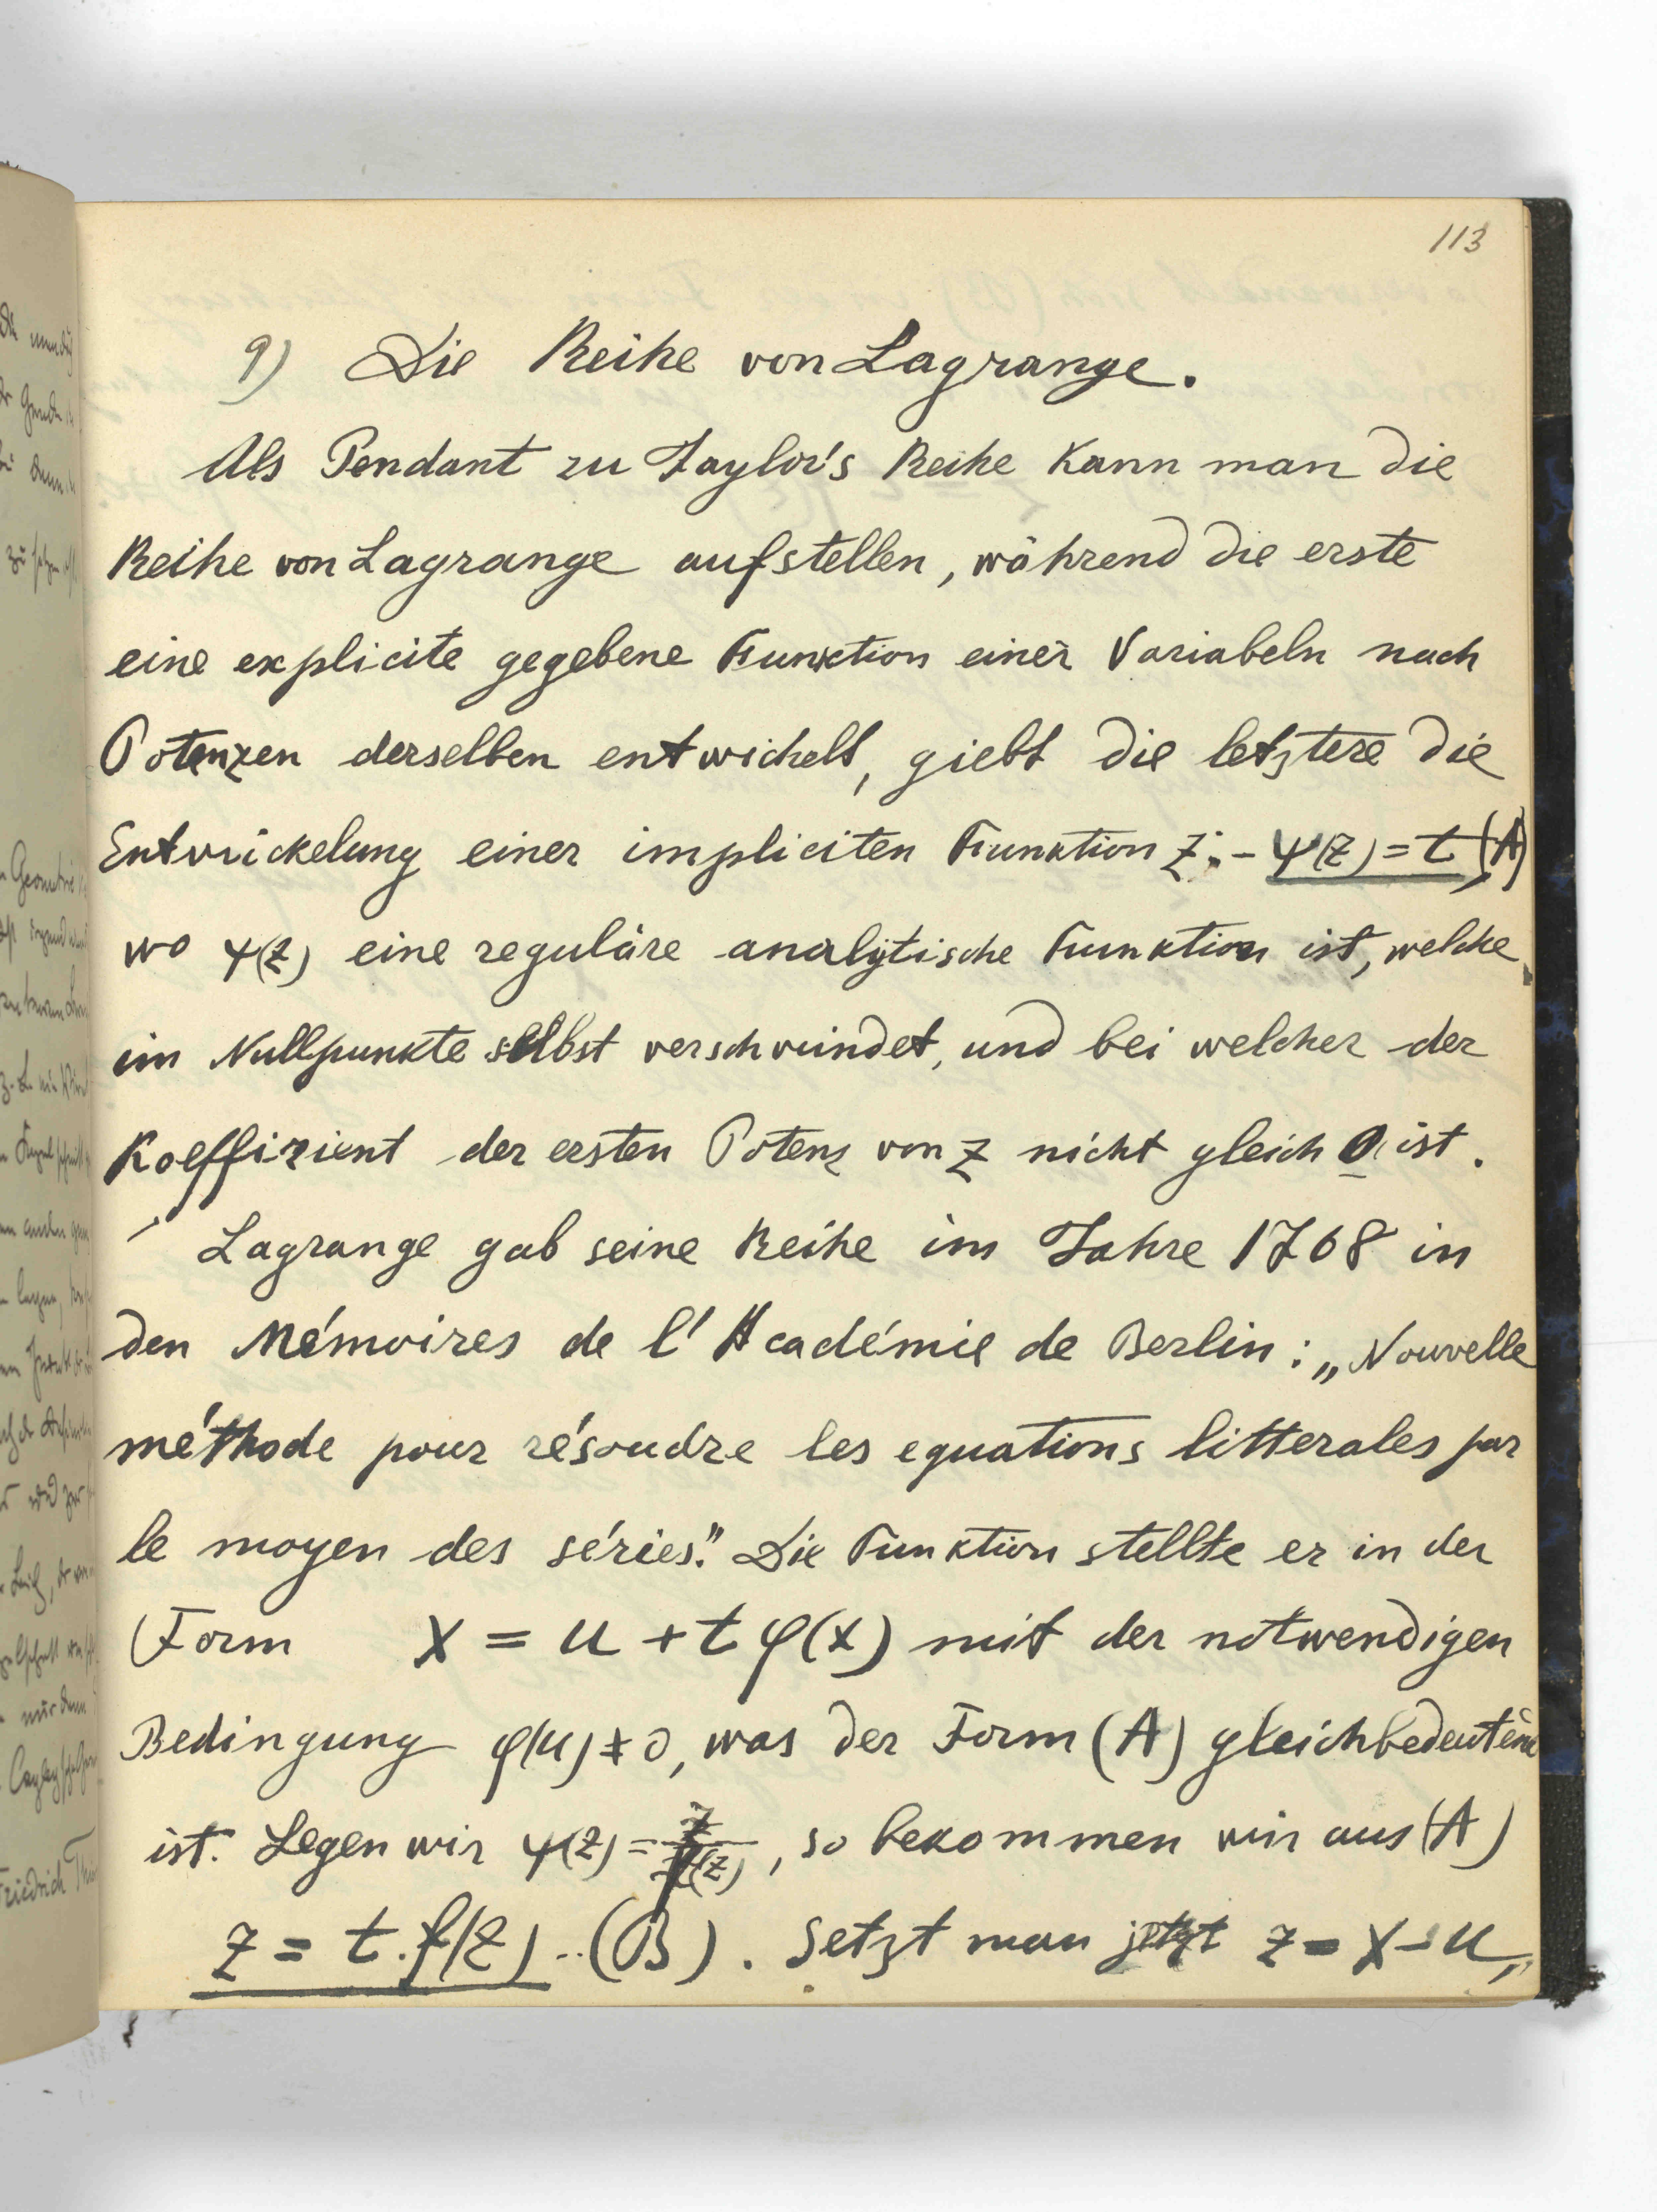 113
9) Die Reihe von Lagrange.
Als Pendant zu Taylor's Reihe kann man die
Reihe von Lagrange aufstellen, während die erste
eine explicite gegebene Funktion einer Variabeln nach
Potenzen derselben entwickelt, giebt die letztere die
Entwickelung einer impliciten Funktion z; - ψ(z) = t, (A)
wo ψ(z) eine reguläre analytische Funktion ist, welche
im Nullpunkte selbst verschwindet, und bei welcher der
Koeffizient der ersten Potenz von z nicht gleich 0 ist.
Lagrange gab seine Reihe im Jahre 1768 in
den Mémoires de l'Académie de Berlin: „Nouvelle
méthode pour résoudre les equations litterales par
le moyen des séries." Die Funktion stellte er in der
Form x = u + t φ(x) mit der notwendigen
Bedingung φ(u) ≠ 0, was der Form (A) gleichbedeutend
ist. Legen wir ψ(z) = z/f(z), so bekommen wir aus (A)
z = t. f(z) -- (B). Setzt man jetzt z = x - u,